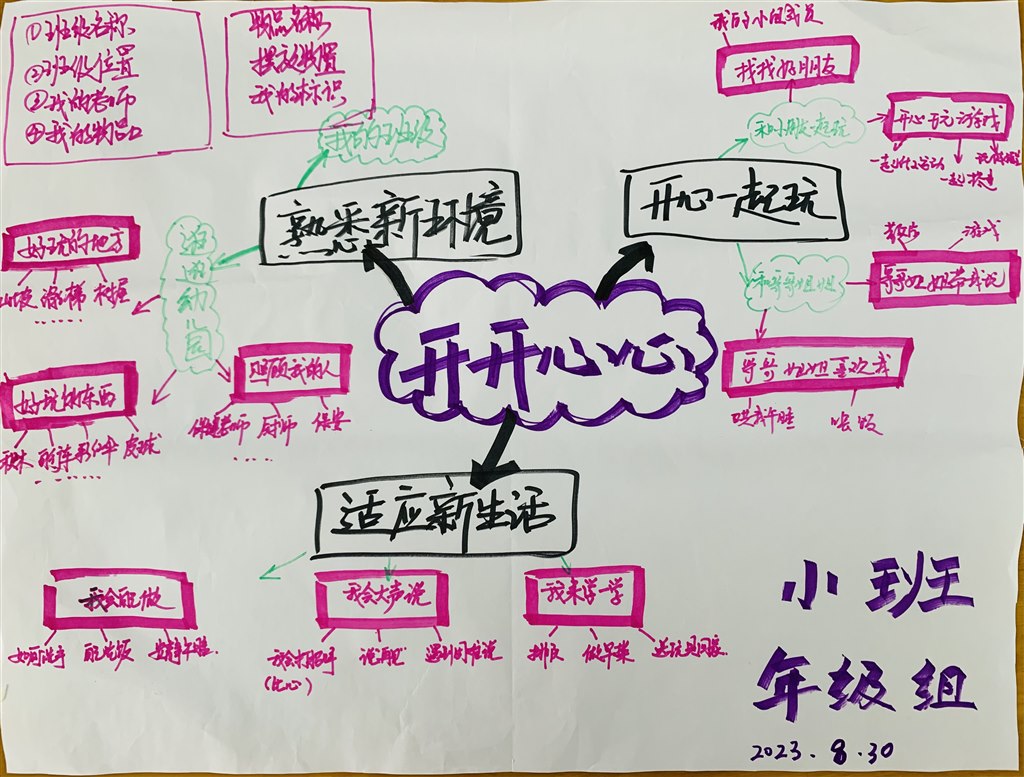 ①班级名称
②班级位置
③我的老师
④我的物品
物品名称
摆放位置
我的标识
我的班级
熟悉新环境
逛逛幼儿园
好玩的地方
滑梯 树屋
……
好玩的东西
积木 彩虹伞 皮球
……
照顾我的人
保健老师 厨师 保安
……
我的小组成员
找找好朋友
和小朋友一起玩
开心玩游戏
开心一起玩
和哥哥姐姐
游戏
哥哥姐姐带我玩
哥哥姐姐喜欢我
哄我午睡 喂饭
开开心心
适应新生活
我会自己做
如何洗手 自己吃饭
我会大声说
我会打招呼
(比心)
遇到困难说
我来学一学
排队 做早操 送玩具回家
小班
年级组
2023.8.30